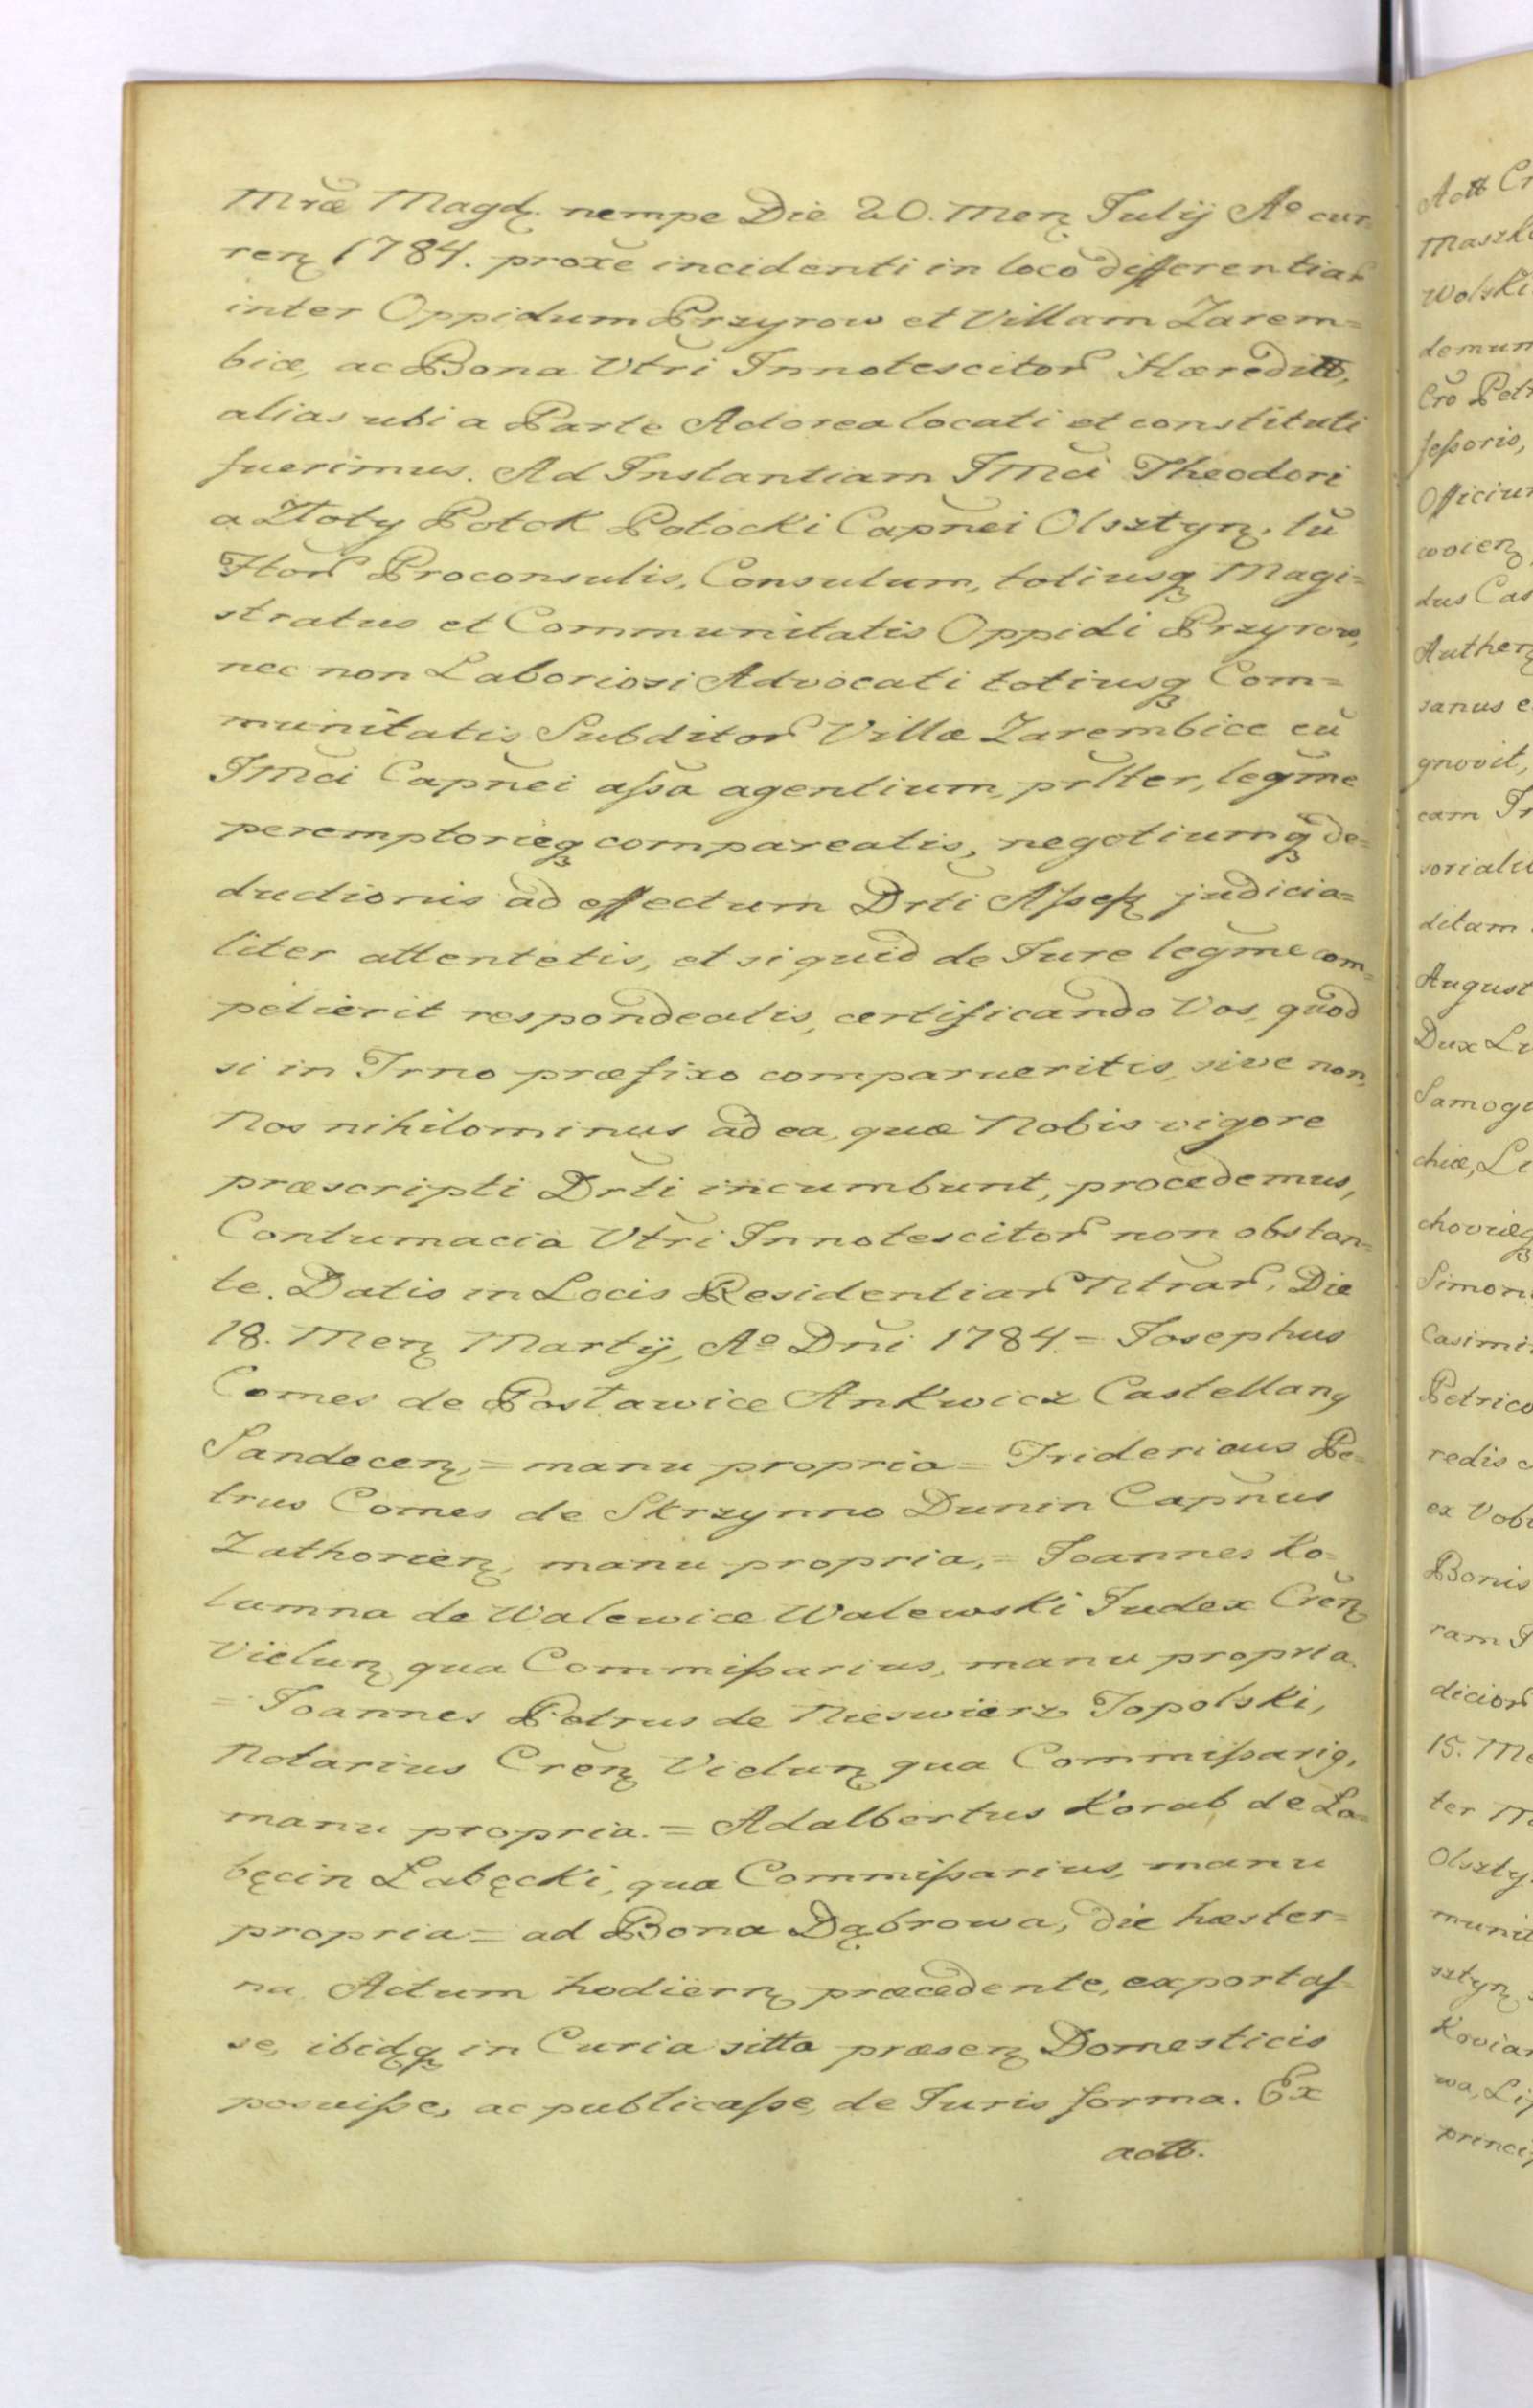 Mræ Magd. nempe Die 20. Men Julij Aº cur
ren 1784. proxe incidenti in loco differentiar
inter Oppidum Przyrow et Villam Zarem=
bice, ac Bona Vtri Innotescitor Hæreditt,
alias ubi a Parte Actorea locati et constituti
fuerimus. Ad Instantiam Jmci Theodori
a Złoty Potok Potocki Capnei Olsztyn, tu
Hor Proconsulis, Consulum, totiusq Magi=
stratus et Communitatis Oppidi Przyrow,
nec non Laboriosi Advocati totiusq Com=
munitatis Subditor Villæ Zarembice cu
Jmci Capnei assa agentium, prlter, legme
peremptorieq compareatis, negotiumq de=
ductionis ad effectum Drti Assess judicia=
liter attentetis, et si quid de Jure legme com=
petierit respondeatis, certificando Vos, quod
si in Trno præfixo comparueritis, sive non,
Nos nihilominus ad ea, quæ Nobis vigore
præscripti Drti incumbunt, procedemus,
Contumacia Vtri Innotescitor non obstan=
te. Datis in Locis Residentiar Ntrar, Die
18. Men Martij, Aº Dni 1784 = Josephus
Comes de Postawice Ankwicz Castellanq
Sandecen, = manu propria = Fridericus Pe=
trus Comes de Skrzynno Dunin Capnus
Zathorien, manu propria, = Joannes Ko=
lumna de Walewice Walewski Judex Cren
Vielun qua Commissarius, manu propria.
= Joannes Petrus de Nieswierz Topolski,
Notarius Cren Vielun qua Commissariq,
manu propria. = Adalbertus Korab de Ła=
bęcin Łabęcki, qua Commissarius, manu
propria = ad Bona Dąbrowa, die hæster=
na Actum hodiern præcedente, exportas
se, ibidq in Curia sitta præsen Domesticis
posuisse, ac publicasse, de Juris forma. Ex
actt.
Actt
demum
August
Petrico
Bonis
15.